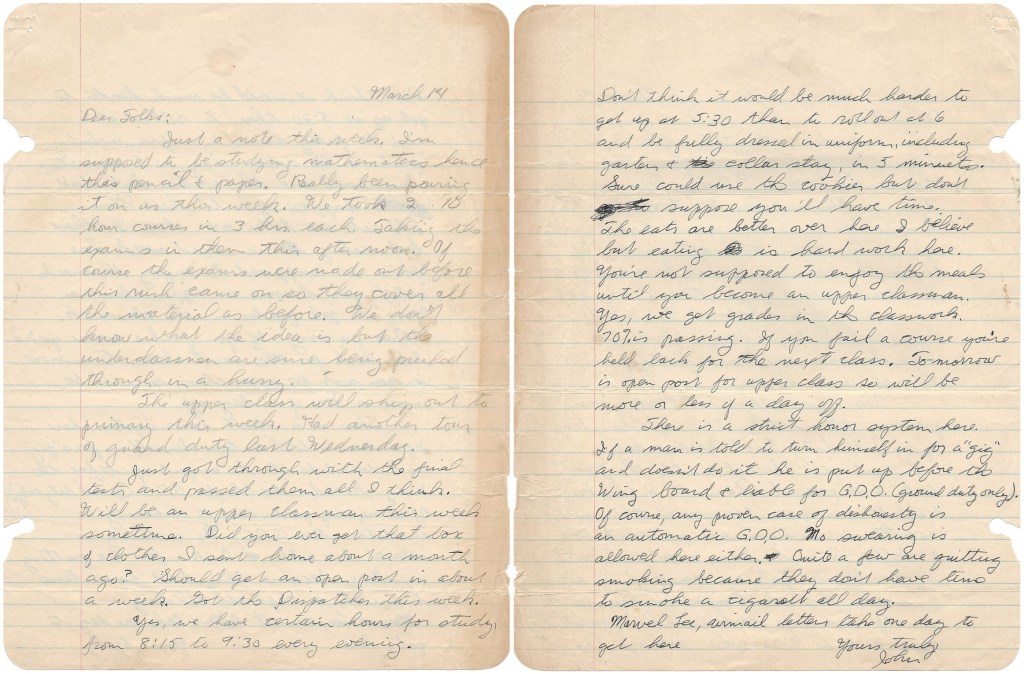 March 14
Dear Folks:
Just a note this week. I'm
supposed to be studying mathematics hence
this pencil & paper. Really been pouring
it on us this week. We took 2 10
hour courses in 3 hrs. each. Taking the
exams in them this after noon. Of
course the exams were made out before
this rush came on so they cover all
the material as before. We don't
know what the idea is but the
underclassmen are sure being pushed
through in a hurry.
The upper class will ship out to
primary this week. Had another tour
of guard duty last Wednesday.
Just got through with the final
tests and passed them all I think.
Will be an upper classman this week
sometime. Did you ever get that box
of clothes I sent home about a month
ago? Should get an open post in about
a week. Got the Dispatches this week.
Yes, we have certain hours for study,
from 8:15 to 9:30 every evening.
Don't think it would be much harder to
get up at 5:30 than to roll out at 6
and be fully dressed in uniform, including
garters & collar stay, in 5 minutes.
Sure could use the cookies but don't
suppose you'll have time.
The eats are better over here I believe
but eating is hard work here.
You're not supposed to enjoy the meals
until you become an upper classman.
Yes, we get grades in the classwork.
70% is passing. If you fail a course you're
held back for the next class. Tomorrow
is open post for upper class so will be
more or less of a day off.
There is a strict honor system here.
If a man is told to turn himself in for a "gig"
and doesn't do it he is put up before the
Wing board & liable for G.D.O. (ground duty only).
Of course, any proven case of dishonesty is
an automatic G.D.O. No swearing is
allowed here either. Quite a few are quitting
smoking because they don't have time
to smoke a cigarett all day.
Marvel Lee, airmail letters take one day to
get here
Yours truly
John